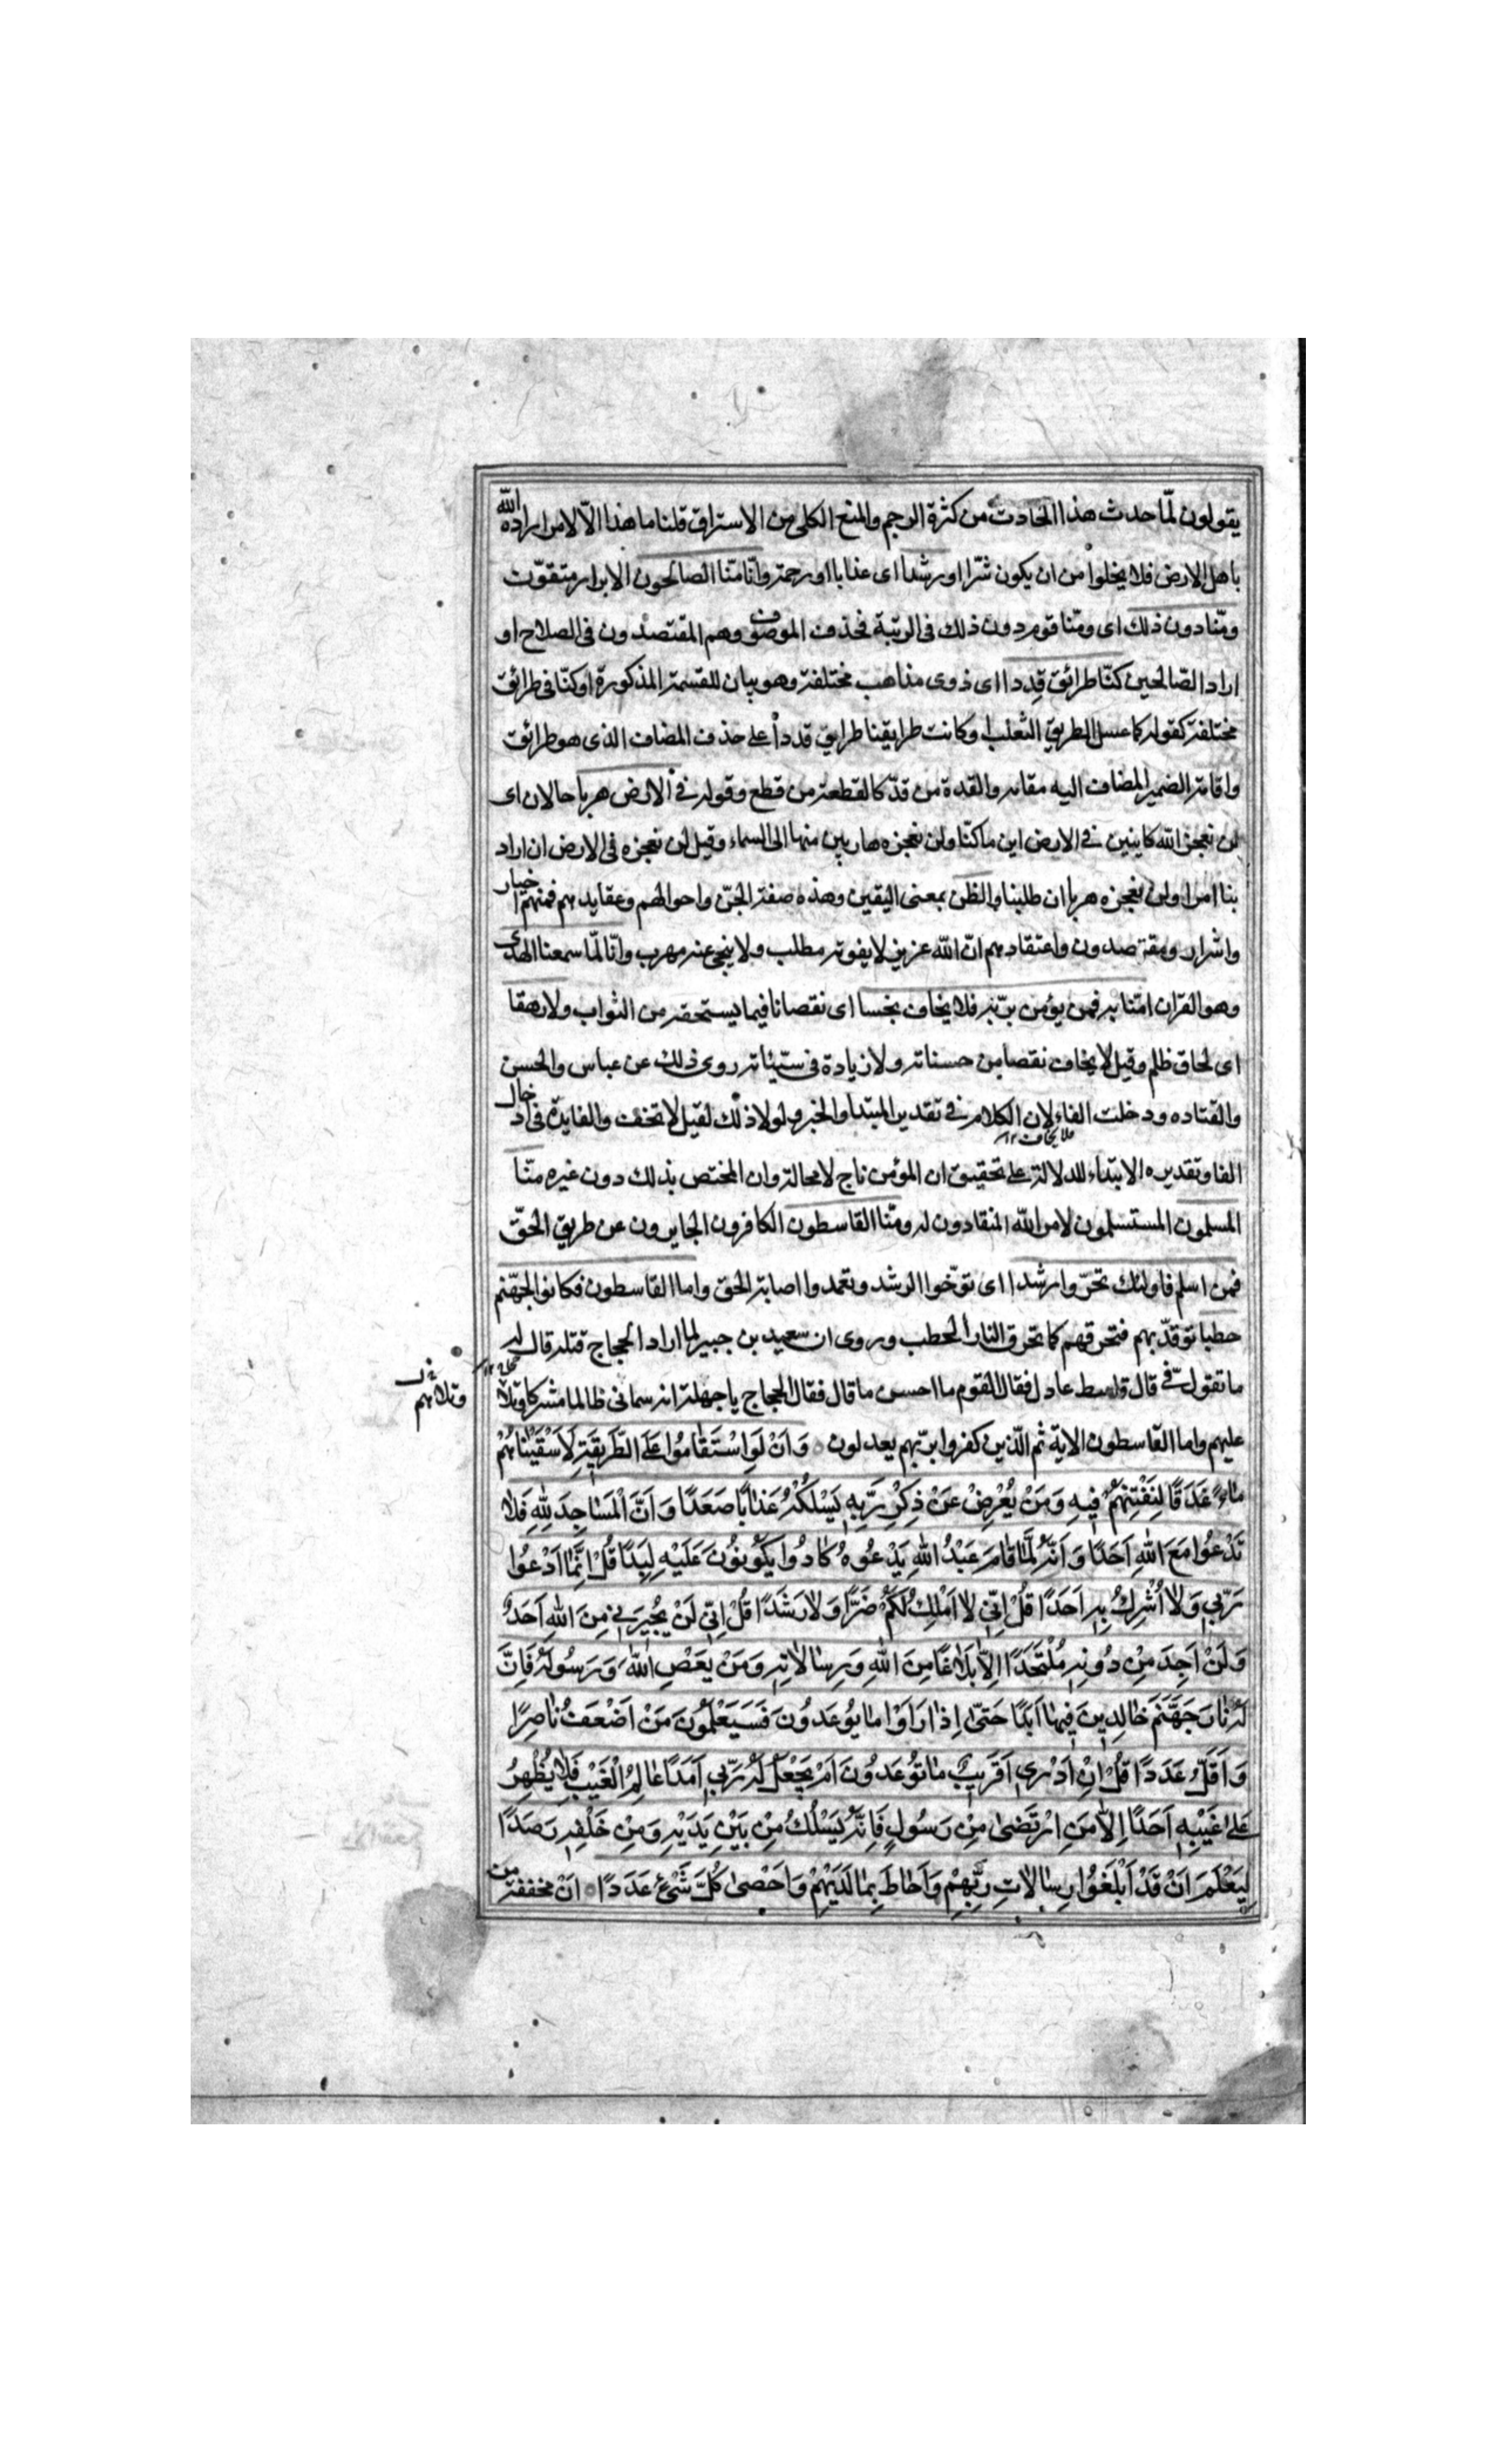 يقولون لمّا حدث هذا الحادث من كثرة الرجم والمنع الكلى من الاستراق قلنا ما هذا الّا لامر اراده الله
باهل الارض فلا يخلوا من ان يكون شرّا او رشدا اى عذابا او رحمة وانّا منّا الصالحون الابرار متقوّت
ومنّا دون ذلك اى ومنا قوم دون ذلك فى الرتبة فحذف الموصوف وهم المقتصدون فى الصلاح او
اراد الصّالحين كنّا طرائق قِدددا اى ذوى مذاهب مختلفة وهو بيان للقسمة المذكورة او كنّا فى طرائق
مختلفة كقوله كما عسل الطريق الثعلب او كانت طرايقنا طرايق قددا على حذف المضاف الذى هو طرائق
واقامة الضمير المضاف اليه مقامه والقدة من قدّ كالقطعة من قطع وقوله فى الارض هربا حالان اى
لن نعجز الله كاينين فى الارض اين ما كنّا ولن نعجزه هاربين منها الى السماء وقيل لن نعجزه فى الارض ان اراد
بنا امرا ولن نعجزه هربا ان طلبنا والظن بمعنى اليقين وهذه صفة الجنّ واحوالهم وعقايدهم فمنهم اخيار
واشرار ومقتصدون واعتقادهم انّ الله عزيز لا يفوته مطلب ولا ينجى عنه مهرب وانّا لمّا سمعنا الهدى
وهو القران امنّا به فمن يؤمن بربّه فلا يخاف بخسا اى نقصانا فيما يستحقه من الثواب ولا رهقا
اى لحاق ظلم وقيل لا يخاف نقصا من حسناته ولا زيادة فى سيّئاته روى ذلك عن عباس والحسن
والقتاده ودخلت الفاء لان الكلام فى تقدير المبتدا والخبر ولولا ذلك لقيل لا تخف والفايدة فى ادخال
فلا يخاف ١٢
الفا وتقديره الابتداء للدلالة على تحقيق ان المؤمن ناج لا محالة وان المختص بذلك دون غيره منّا
المسلمون المستسلمون لامر الله المنقادون له ومنّا القاسطون الكافرون الجايرون عن طريق الحقّ
فمن اسلم فاولئك تحرّوا رشدا اى توخّوا الرشد وتعمدوا اصابة الحق واما القاسطون فكانوا لجهّنم
حطبا توقدّ بهم فتحرقهم كما تحرق النار الحطب وروى ان سعيد بن جبير لما اراد الحجاج قتله قال له
ما تقول فّى قال قاسط عادل فقال القوم ما احسن ما قال فقال الحجاج يا جهلة انه سمانى ظالما مشركا وتلا
وتلا لهم
عليهم واما القاسطون الاية ثم الّذين كفروا بربّهم يعدلون وَاَنْ لَوِ اسْتَقٰامُوا عَلَى الطَّرِيقَةِ لَاَسْقَيْنٰاهُمْ
مٰاءً غَدَقًا لِنَفْتِنَهُمْ فِيهِ وَمَنْ يُعْرِضْ عَنْ ذِكْرِ رَبِّهِ يَسْلُكْهُ عَذٰابًا صَعَدًا وَاَنَّ الْمَسٰاجِدَ لِلّٰهِ فَلاٰ
تَدْعُوا مَعَ اللّٰهِ اَحَدًا وَاَنَّهُ لَمَّا قٰامَ عَبْدُ اللّٰهِ يَدْعُوهُ كٰادُوا يَكُونُونَ عَلَيْهِ لِبَدًا قُلْ اِنَّمٰا اَدْعُوا
رَبِّي وَلاٰ اُشْرِكُ بِهِ اَحَدًا قُلْ اِنّي لاٰ اَمْلِكُ لَكُمْ ضَرًّا وَلاٰ رَشَدًا قُلْ اِنّي لَنْ يُجِيرَنِي مِنَ اللّٰهِ اَحَدٌ
وَلَنْ اَجِدَ مِنْ دُونِهِ مُلْتَحَدًا اِلاّٰ بَلاٰغًا مِنَ اللّٰهِ وَرِسٰالاٰتِهِ وَمَنْ يَعْصِ اللّٰهَ وَرَسُولَهُ فَاِنَّ
لَهُ نٰارَ جَهَنَّمَ خٰالِدِينَ فِيهٰا اَبَدًا حَتّىٰ اِذٰا رَاَوْا مٰا يُوعَدُونَ فَسَيَعْلَمُونَ مَنْ اَضْعَفُ نٰاصِرًا
وَاَقَلُّ عَدَدًا قُلْ اِنْ اَدْرِي اَقَرِيبٌ مٰا تُوعَدُونَ اَمْ يَجْعَلُ لَهُ رَبِّي اَمَدًا عٰالِمُ الْغَيْبِ فَلاٰ يُظْهِرُ
عَلىٰ غَيْبِهِ اَحَدًا اِلاّٰ مَنِ ارْتَضىٰ مِنْ رَسُولٍ فَاِنَّهُ يَسْلُكُ مِنْ بَيْنِ يَدَيْهِ وَمِنْ خَلْفِهِ رَصَدًا
لِيَعْلَمَ اَنْ قَدْ اَبْلَغُوا رِسٰالاٰتِ رَبِّهِمْ وَاَحٰاطَ بِمٰا لَدَيْهِمْ وَاَحْصىٰ كُلَّ شَيْءٍ عَدَدًا اَنْ مخففة من